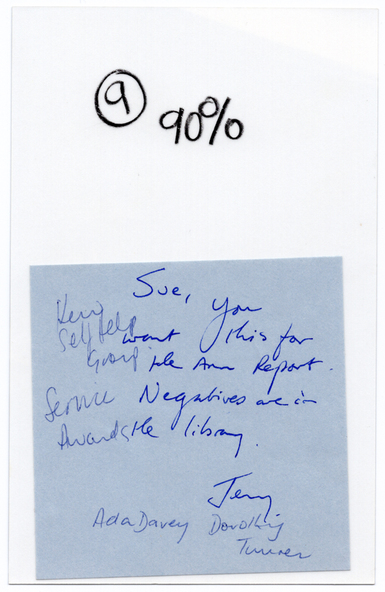 9 90%
Sue, You
want this for
the Ann Report.
Negatives are in
the library.
Jenny
Self Help
Group
Service
Awards
Ada Davey Dorothy
Turner